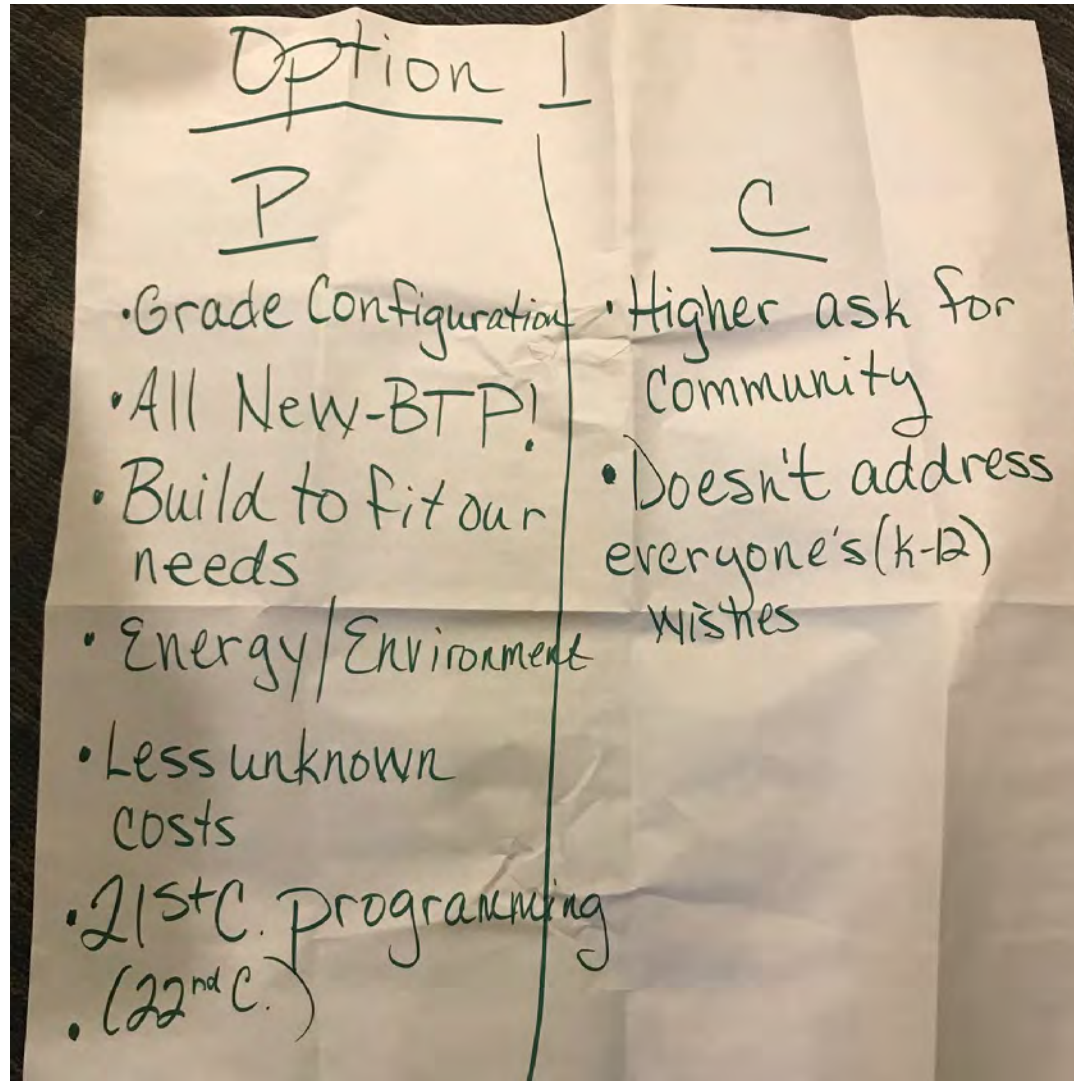 Option 1
P
• Grade Configuration
• All New-BTP!
• Build to fit our
needs
• Energy/Environment
• Less unknown
costs
• 21st C. programming
• (22nd C.)
C
• Higher ask for
Community
• Doesn't address
everyone's (k-12)
wishes